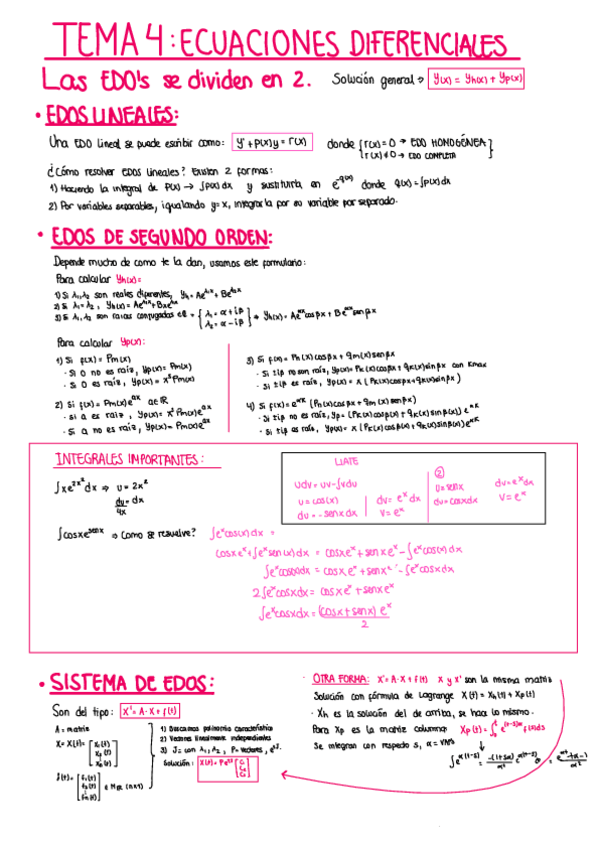 TEMA 4: ECUACIONES DIFERENCIALES
Las EDO's se dividen en 2. Solución general → y(x) = yh(x) + yp(x)
• EDOS LINEALES:
Una EDO lineal se puede escribir como: y' + p(x)y = r(x) donde { r(x) = 0 → EDO HOMOGÉNEA
r(x) ≠ 0 → EDO COMPLETA }
¿Cómo resolver EDOs lineales? Existen 2 formas:
1) Haciendo la integral de P(x) → ∫p(x)dx y sustituirla en e^-q(x) donde q(x) = ∫p(x)dx
2) Por variables separables, igualando y = x, integrarla por su variable por separado.
• EDOS DE SEGUNDO ORDEN:
Depende mucho de como te la dan, usamos este formulario:
Para calcular yh(x)=
1) Si λ₁, λ₂ son reales diferentes, yh = Ae^λ₁x + Be^λ₂x
2) Si λ₁ = λ₂, yh(x) = Ae^λ₁x + Bxe^λ₂x
3) Si λ₁, λ₂ son raices conjugadas { λ₁ = α + iβ
λ₂ = α - iβ } → yh(x) = Ae^αx cosβx + Be^αx senβx
Para calcular yp(x):
1) Si f(x) = Pm(x)
· Si 0 no es raíz, yp(x) = Pm(x)
· Si 0 es raíz, yp(x) = x^s Pm(x)
2) Si f(x) = Pm(x)e^ax a∈ℝ
· Si a es raíz, yp(x) = x^s Pm(x)e^ax
· Si a no es raíz, yp(x) = Pm(x)e^ax
3) Si f(x) = Pn(x)cosβx + qm(x)senβx
· Si ±iβ no son raíz, yp(x) = Pk(x)cosβx + qk(x)sinβx con Kmax
· Si ±iβ es raíz, yp(x) = x (Pk(x)cosβx + qk(x)sinβx)
4) Si f(x) = e^αx (Pn(x)cosβx + qm(x)senβx)
· Si ±iβ no es raíz, yp = (Pk(x)cosβ(x) + qk(x)sinβ(x)) e^αx
· Si ±iβ es raíz, yp(x) = x (Pk(x)cosβ(x) + qk(x)sinβ(x)) e^αx
INTEGRALES IMPORTANTES:
∫xe^2x² dx ⇒ u = 2x²
du/4x = dx
LIATE
∫udv = uv - ∫vdu
u = cos(x) dv = e^x dx
du = -senx dx v = e^x
②
u = senx dv = e^x dx
du = cosxdx v = e^x
∫cosxe^senx ⇒ Como se resuelve? ∫e^x cos(x) dx =
cosxe^x + ∫e^x sen(x)dx = cosxe^x + senxe^x - ∫e^x cos(x) dx
∫e^x cosxdx = cosxe^x + senx - ∫e^x cosxdx
2∫e^x cosxdx = cosxe^x + senxe^x
∫e^x cosxdx = (cosx + senx) e^x / 2
• SISTEMA DE EDOS:
Son del tipo: X' = A·X + f(t)
A = matriz
X = X(t) = [x₁(t)
x₂(t)
⋮
1) Buscamos polinomio característico
2) Vectores linealmente independientes
3) J = con λ₁, λ₂, P = vectores, e^tJ.
Solución:
· OTRA FORMA: X' = A·X + f(t) X y X' son la misma matriz
Solución con fórmula de Lagrange X(t) = Xh(t) + Xp(t)
· Xh es la solución del de arriba, se hace lo mismo.
Para Xp es la matriz columna Xp(t) =
Se integran con respecto s, α = VAPs